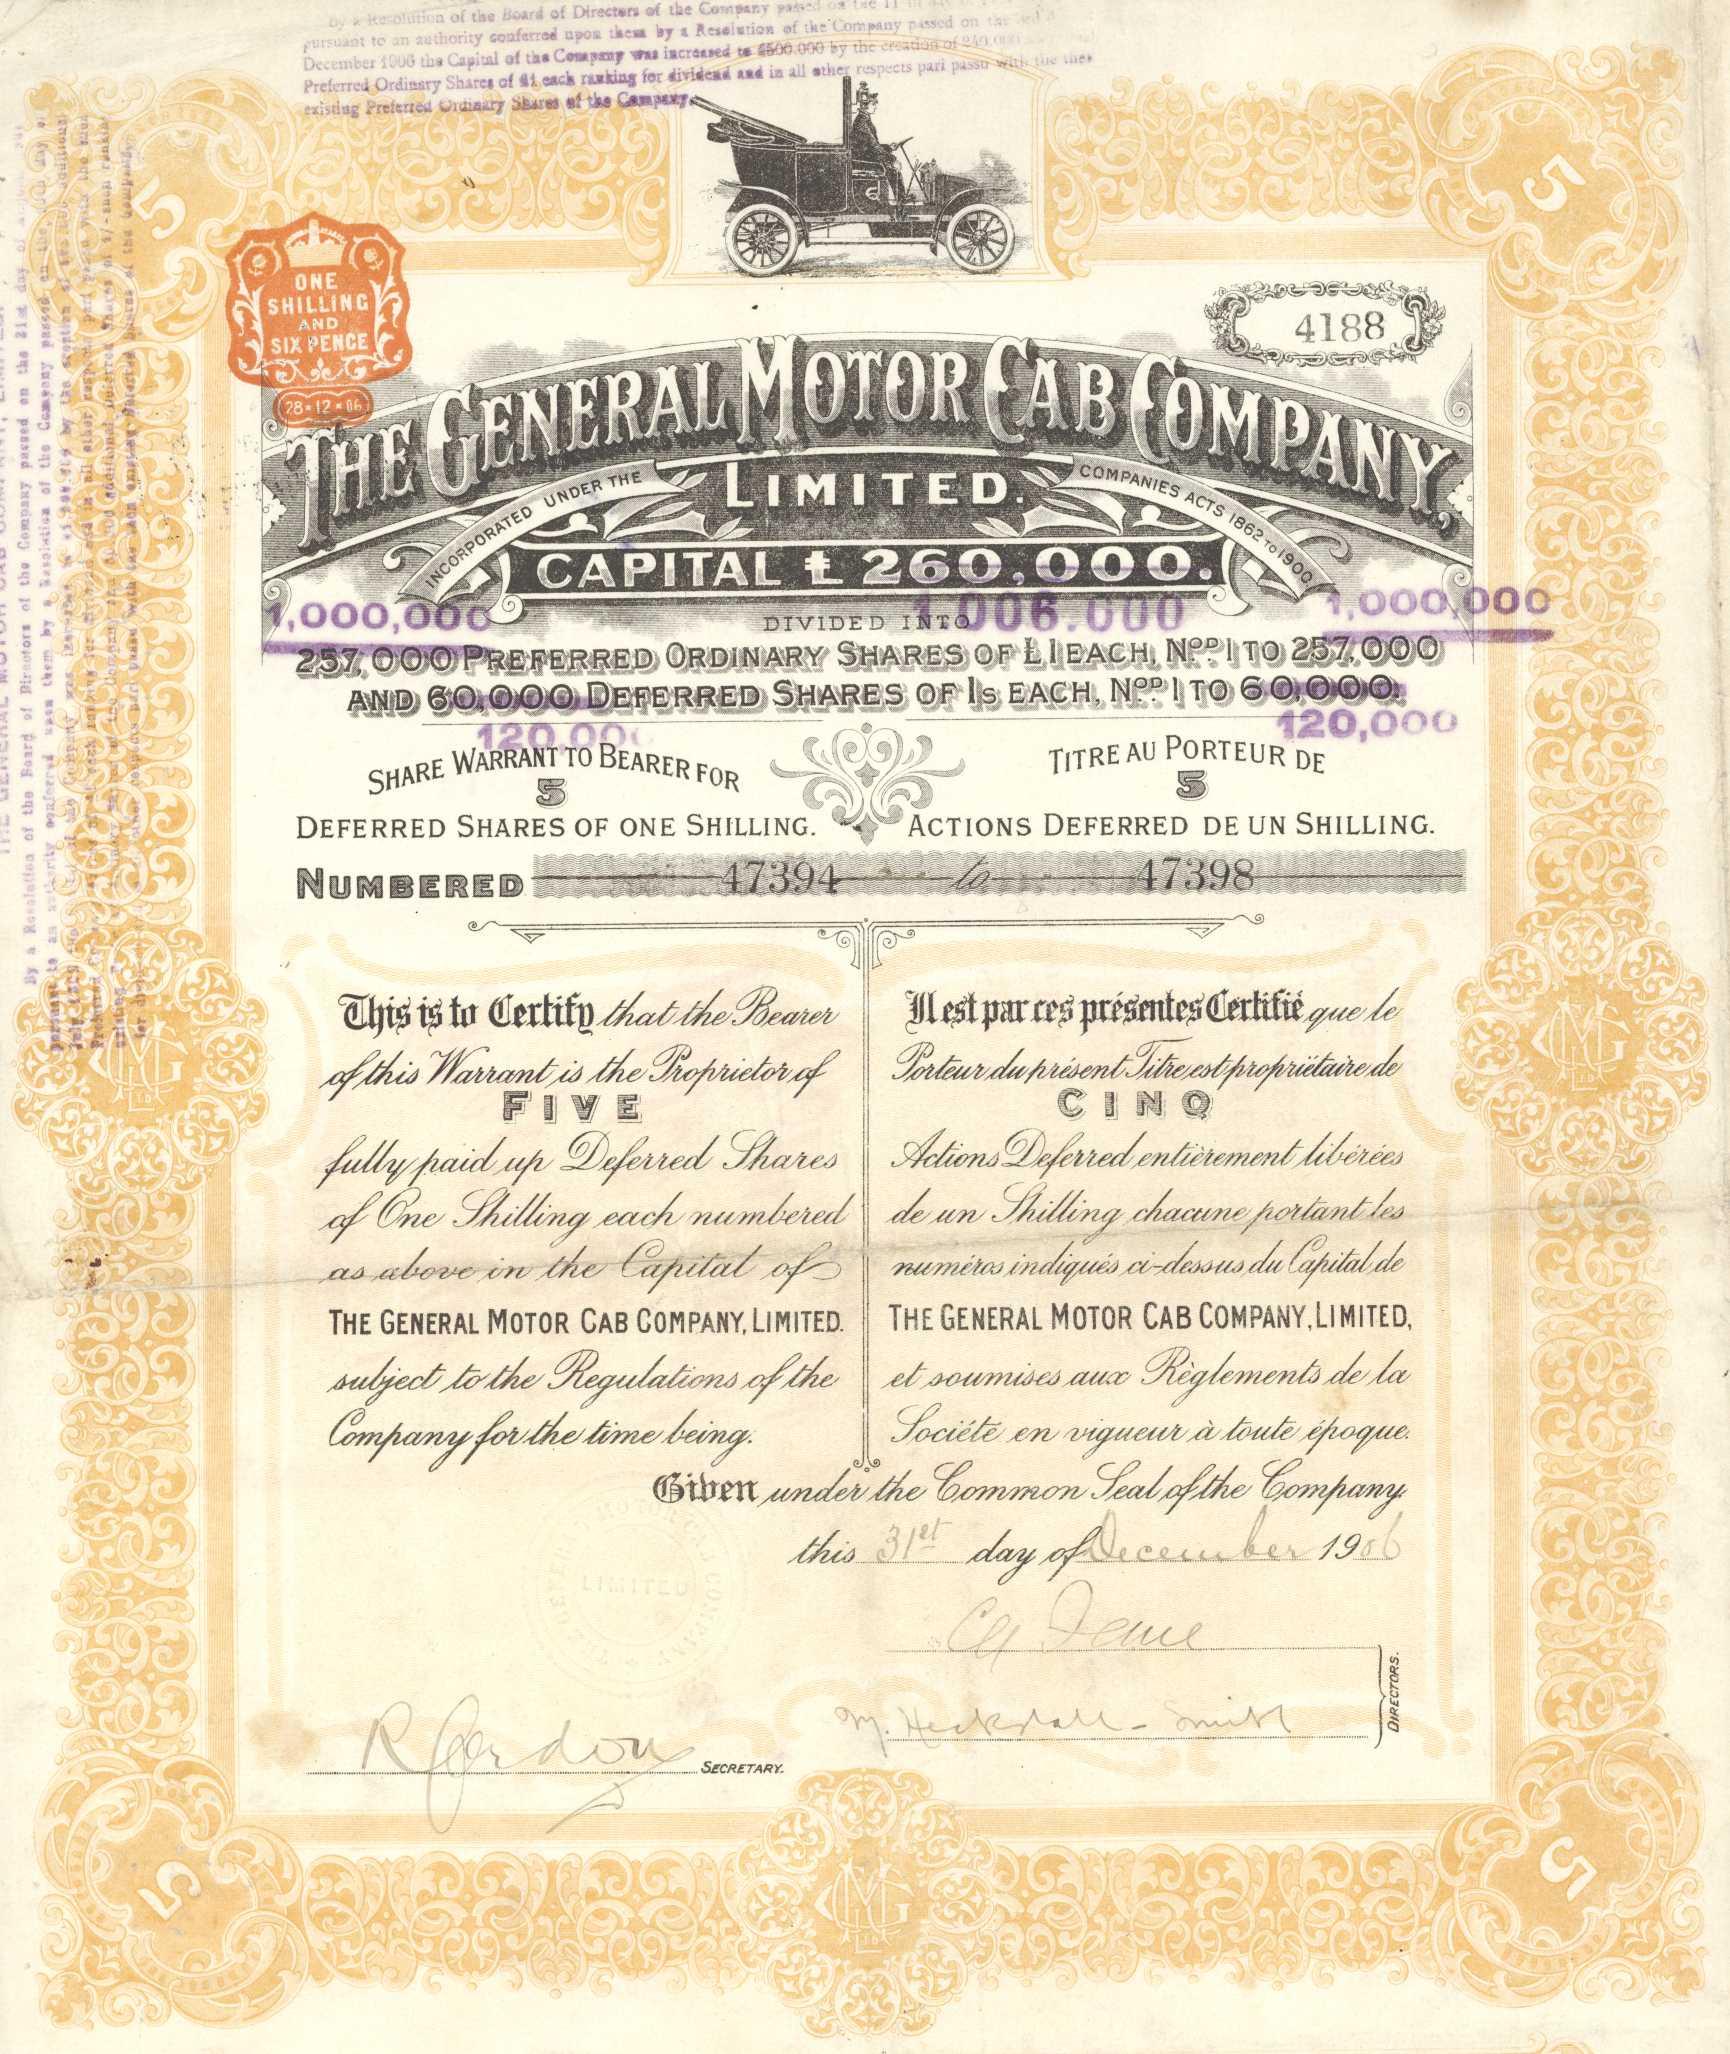 By a Resolution of the Board of Directors of the Company passed on the 11
pursuant to an authority conferred upon them by a Resolution of the Company passed on the
December 1906 the Capital of the Company was increased to £500.000 by the creation of 240.000
Preferred Ordinary Shares of £1 each ranking for dividend and in all other respects pari passu with the then
existing Preferred Ordinary Shares of the Company.
5
5
ONE
SHILLING
AND
SIX PENCE
28·12·06
4188
THE GENERAL MOTOR CAB COMPANY,
LIMITED.
INCORPORATED UNDER THE
COMPANIES ACTS 1862 TO 1900
CAPITAL £ 260,000.
1,000,000
1.006.000
1,000,000
DIVIDED INTO
257,000 PREFERRED ORDINARY SHARES OF £1 EACH, NOD. 1 TO 257,000
AND 60,000 DEFERRED SHARES OF 1S EACH, NOD. 1 TO 60,000.
120,000
120,000
SHARE WARRANT TO BEARER FOR
5
DEFERRED SHARES OF ONE SHILLING.
TITRE AU PORTEUR DE
5
ACTIONS DEFERRED DE UN SHILLING.
NUMBERED 47394 to 47398
This is to Certify that the Bearer
of this Warrant is the Proprietor of
FIVE
fully paid up Deferred Shares
of One Shilling each numbered
as above in the Capital of
THE GENERAL MOTOR CAB COMPANY, LIMITED.
subject to the Regulations of the
Company for the time being.
Il est par ces présentes Certifié que le
Porteur du présent Titre est propriétaire de
CINQ
Actions Deferred entièrement libérées
de un Shilling chacune portant les
numéros indiqués ci-dessus du Capital de
THE GENERAL MOTOR CAB COMPANY, LIMITED,
et soumises aux Règlements de la
Société en vigueur à toute époque.
Given under the Common Seal of the Company.
this 31st day of December 1906
LIMITED
DIRECTORS.
M. Heckstall-Smith
R Gordon SECRETARY.
5
5